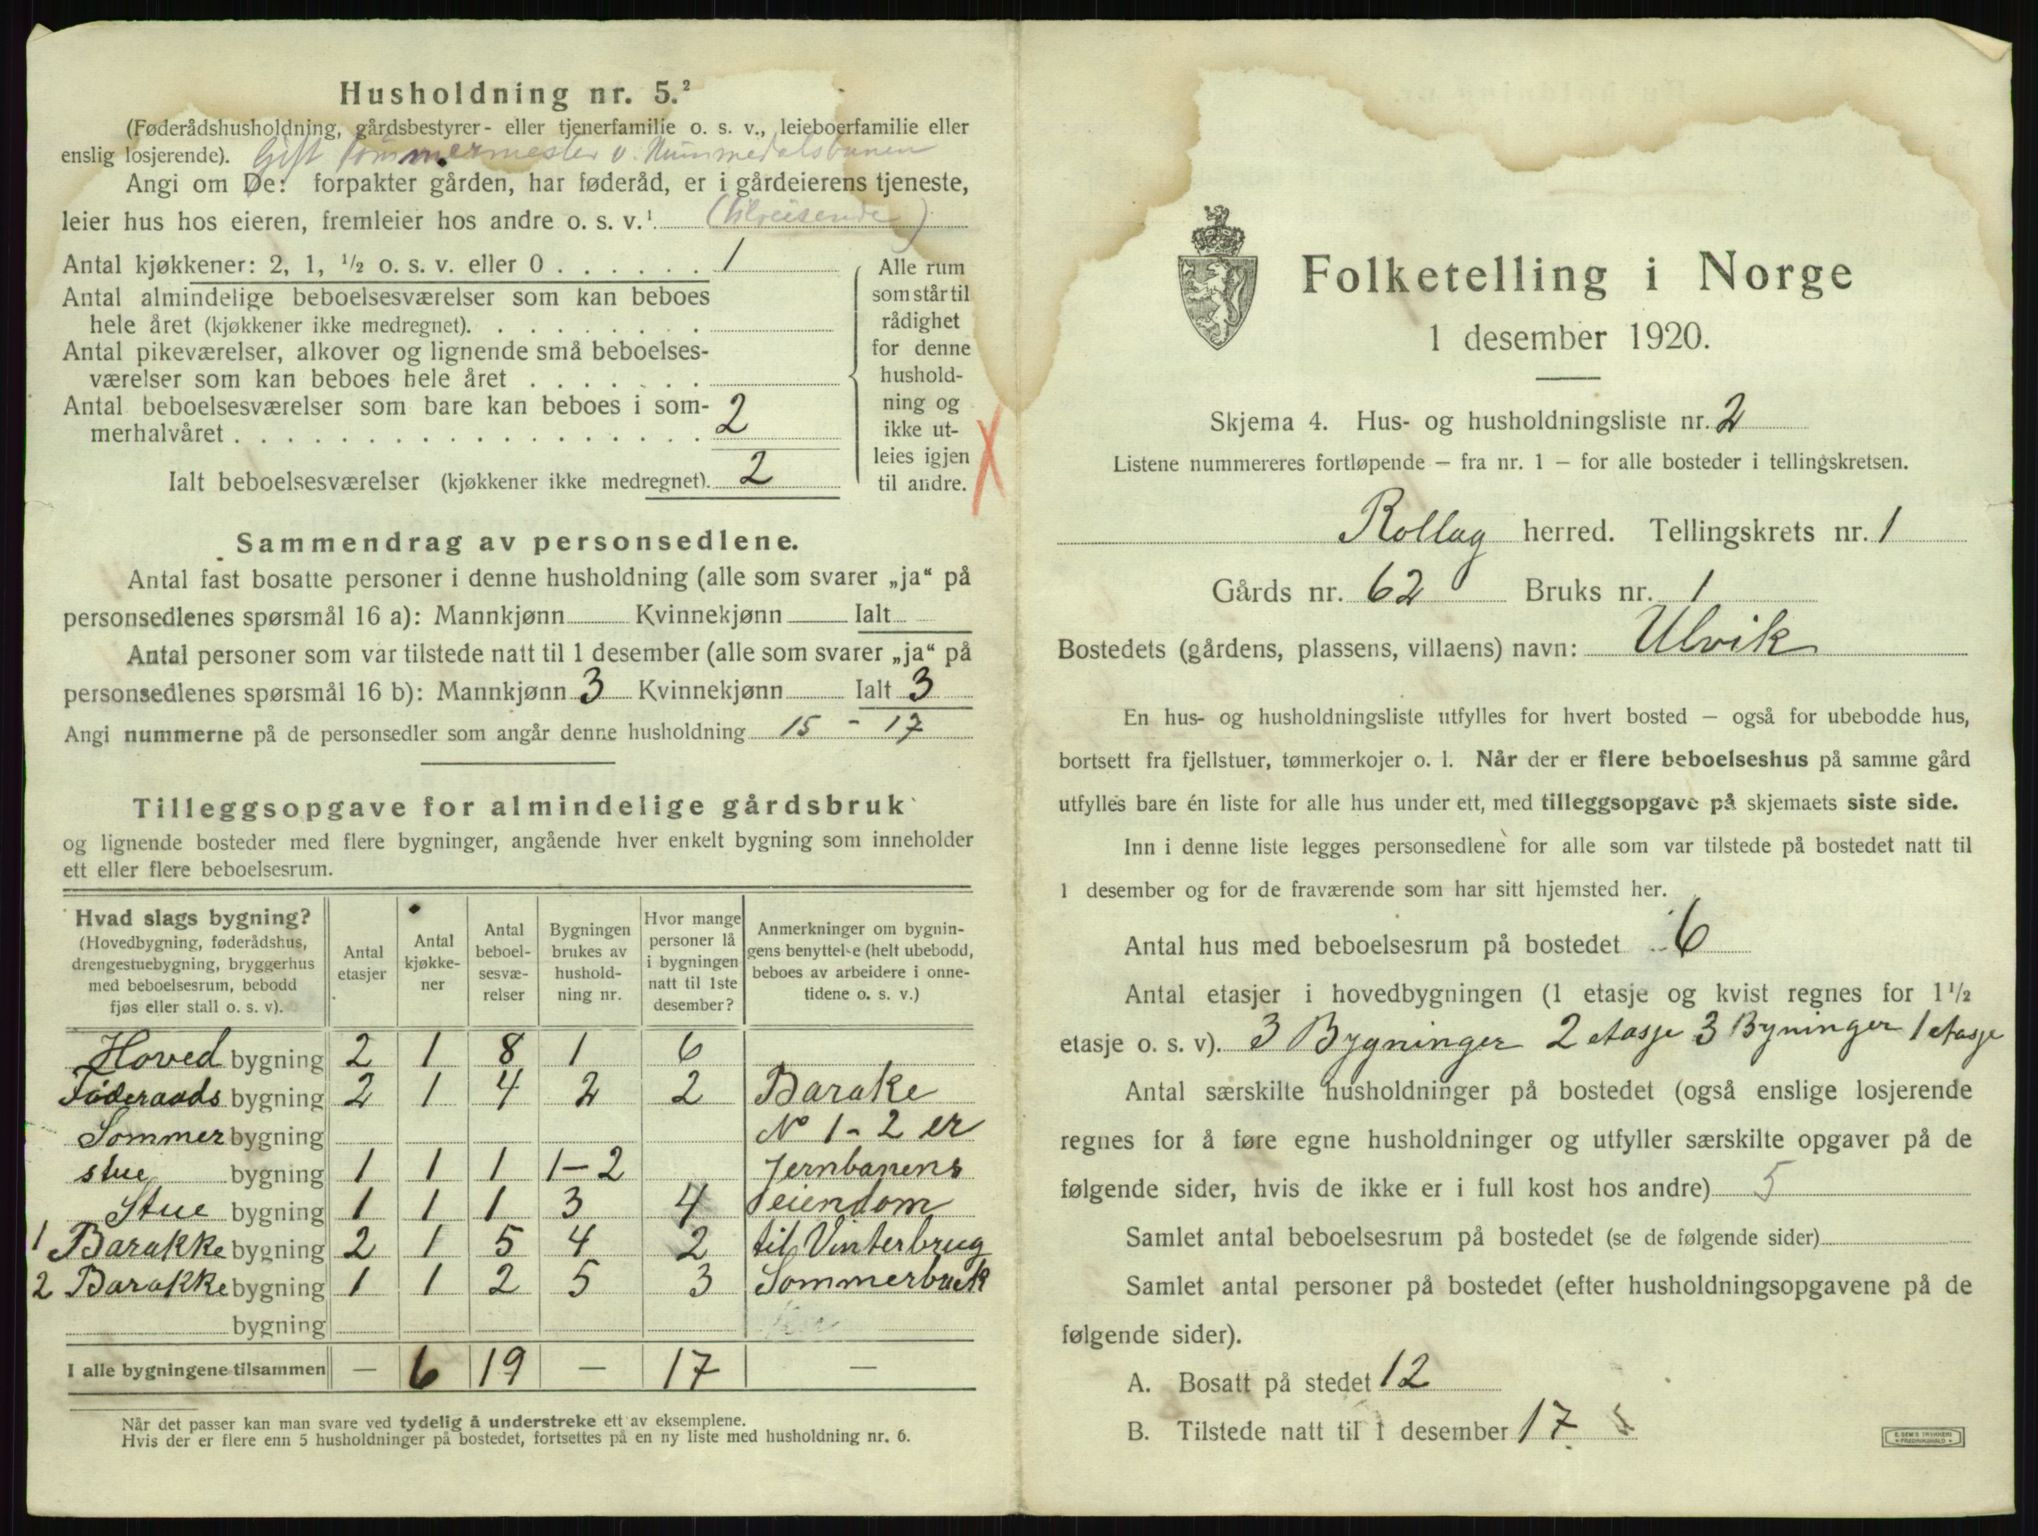 Husholdning nr. 5.²
(Føderådshusholdning, gårdsbestyrer- eller tjenerfamilie o. s. v., leieboerfamilie eller
enslig losjerende). Gift Tømmermester v. Nummedalsbanen
Angi om De: forpakter gården, har føderåd, er i gårdeierens tjeneste,
leier hus hos eieren, fremleier hos andre o. s. v.¹ (tilreisende)
Antal kjøkkener: 2, 1, ½ o. s. v. eller 0 . . . . . . 1
Antal almindelige beboelsesværelser som kan beboes
hele året (kjøkkener ikke medregnet). . . . . . . . .
Antal pikeværelser, alkover og lignende små beboelses-
værelser som kan beboes hele året . . . . . . .
Antal beboelsesværelser som bare kan beboes i som-
merhalvåret . . . . . . . . . . . . . . . . . . 2
Ialt beboelsesværelser (kjøkkener ikke medregnet). 2
Alle rum
som står til
rådighet
for denne
hushold-
ning og
ikke ut-
leies igjen
til andre.
X
Sammendrag av personsedlene.
Antal fast bosatte personer i denne husholdning (alle som svarer „ja“ på
personsedlenes spørsmål 16 a): Mannkjønn Kvinnekjønn Ialt
Antal personer som var tilstede natt til 1 desember (alle som svarer „ja“ på
personsedlenes spørsmål 16 b): Mannkjønn 3 Kvinnekjønn Ialt 3
Angi nummerne på de personsedler som angår denne husholdning 15 - 17
Tilleggsopgave for almindelige gårdsbruk
og lignende bosteder med flere bygninger, angående hver enkelt bygning som inneholder
ett eller flere beboelsesrum.
Hvad slags bygning?
(Hovedbygning, føderådshus,
drengestuebygning, bryggerhus
med beboelsesrum, bebodd
fjøs eller stall o. s. v).
Antal
etasjer
Antal
kjøkke-
ner
Antal
beboel-
sesvæ-
relser
Bygningen
brukes av
hushold-
ning nr.
Hvor mange
personer lå
i bygningen
natt til 1ste
desember?
Anmerkninger om bygnin-
gens benyttelse (helt ubebodd,
beboes av arbeidere i onne-
tidene o. s. v.)
Hoved bygning 2 1 8 1 6
Føderaads bygning 2 1 4 2 2 Barake
Sommer bygning No 1 - 2 er
stue bygning 1 1 1 1-2 Jernbanens
Stue bygning 1 1 1 3 4 eiendom
1 Barakke bygning 2 1 5 4 2 til Vinterbrug
2 Barakke bygning 1 1 2 5 3 Sommerbruk
bygning
I alle bygningene tilsammen — 6 19 — 17 —
Når det passer kan man svare ved tydelig å understreke ett av eksemplene.
Hvis der er flere enn 5 husholdninger på bostedet, fortsettes på en ny liste med husholdning nr. 6.
Folketelling i Norge
1 desember 1920.
Skjema 4. Hus- og husholdningsliste nr. 2
Listene nummereres fortløpende – fra nr. 1 – for alle bosteder i tellingskretsen.
Rollag herred. Tellingskrets nr. 1
Gårds nr. 62 Bruks nr. 1
Bostedets (gårdens, plassens, villaens) navn: Ulvik
En hus- og husholdningsliste utfylles for hvert bosted – også for ubebodde hus,
bortsett fra fjellstuer, tømmerkojer o. l. Når der er flere beboelseshus på samme gård
utfylles bare én liste for alle hus under ett, med tilleggsopgave på skjemaets siste side.
Inn i denne liste legges personsedlene for alle som var tilstede på bostedet natt til
1 desember og for de fraværende som har sitt hjemsted her.
Antal hus med beboelsesrum på bostedet 6
Antal etasjer i hovedbygningen (1 etasje og kvist regnes for 1½
etasje o. s. v). 3 Bygninger 2 etasje 3 Bygninger 1 etasje
Antal særskilte husholdninger på bostedet (også enslige losjerende
regnes for å føre egne husholdninger og utfyller særskilte opgaver på de
følgende sider, hvis de ikke er i full kost hos andre) 5
Samlet antal beboelsesrum på bostedet (se de følgende sider)
Samlet antal personer på bostedet (efter husholdningsopgavene på de
følgende sider).
A. Bosatt på stedet 12
B. Tilstede natt til 1 desember 17
E. SEM'S TRYKKERI
FREDRIKSHALD